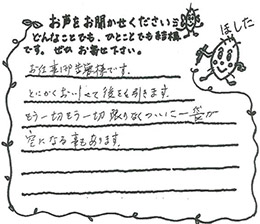 お声をお聞かせください
どんなことでも、ひとことでも結構
です。ぜひ お寄せ下さい。
ほした
お仕事御苦労様です。
とにかくおいしくて後を引きます。
もう一切もう一切限りなくついに一袋が
空になる事もあります。